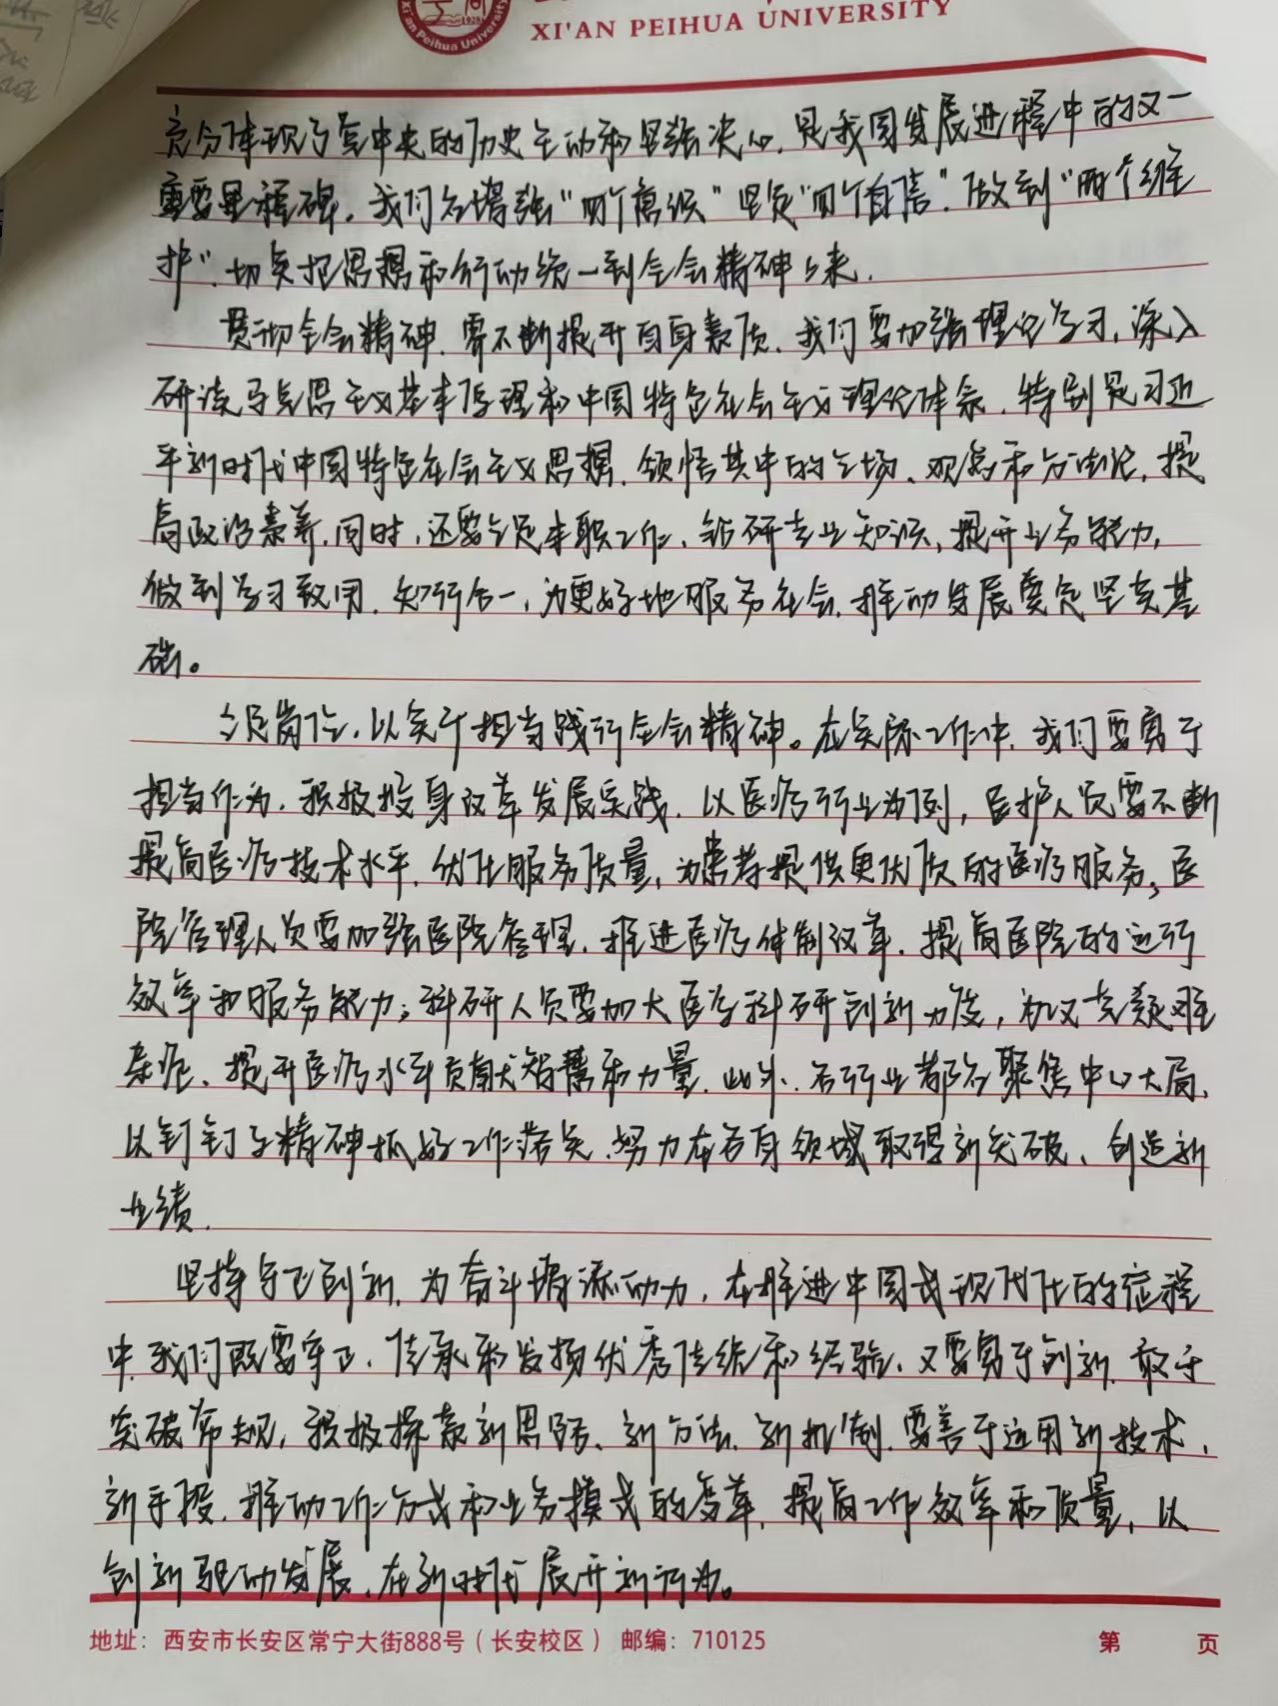 XI'AN PEIHUA UNIVERSITY
Xi'an Peihua University
1928
充分体现了党中央的历史主动和坚强决心，是我国发展进程中的又一
重要里程碑。我们应增强“四个意识”坚定“四个自信”。做到“两个维
护”，切实把思想和行动统一到全会精神上来.
贯彻全会精神，需不断提升自身素质，我们要加强理论学习，深入
研读马克思主义基本原理和中国特色社会主义理论体系，特别是习近
平新时代中国特色社会主义思想，领悟其中的立场、观点和方法论，提
高政治素养，同时，还要立足本职工作，钻研专业知识，提升业务能力，
做到学习致用，知行合一，为更好地服务社会，推动发展奠定坚实基
础。
立足岗位，以实干担当践行全会精神。在实际工作中，我们要勇于
担当作为，积极投身改革发展实践，以医疗行业为例，医护人员要不断
提高医疗技术水平，优化服务质量，为患者提供更优质的医疗服务；医
院管理人员要加强医院管理，推进医疗体制改革，提高医院的运行
效率和服务能力；科研人员要加大医学科研创新力度，为攻克疑难
杂症、提升医疗水平贡献智慧和力量，此外，各行业都应聚焦中心大局，
以钉钉子精神抓好工作落实，努力在各自领域取得新突破、创造新
业绩.
坚持守正创新，为奋斗增添动力，在推进中国式现代化的征程
中，我们既要守正，传承和发扬优秀传统和经验，又要勇于创新，敢于
突破常规，积极探索新思路、新方法、新机制，要善于运用新技术，
新手段，推动工作方式和业务模式的变革，提高工作效率和质量，以
创新驱动发展，在新时代展开新行为。
地址：西安市长安区常宁大街888号（长安校区） 邮编：710125 第 页